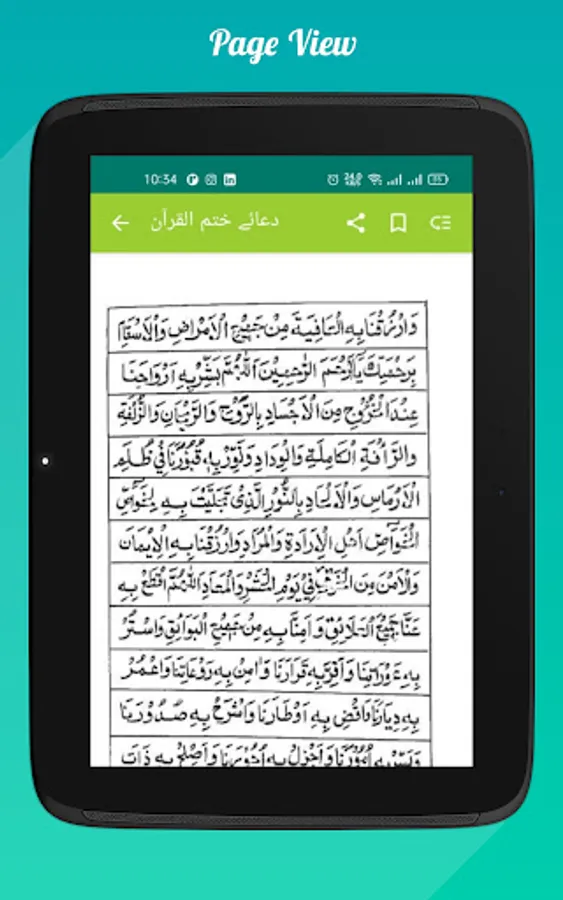 Page View
10:34
دعائے ختم القرآن
وَارْزُقْنَا بِهِ الْعَافِيَةَ مِنْ جَمِيْعِ الْاَمْرَاضِ وَالْاَسْقَامِ
بِرَحْمَتِكَ يَا اَرْحَمَ الرّٰحِمِيْنَ اَللّٰهُمَّ بَشِّرْ بِهِ اَرْوَاحَنَا
عِنْدَ الْخُرُوْجِ مِنَ الْاَجْسَادِ بِالرَّوْحِ وَالرَّيْحَانِ وَالزُّلْفَةِ
وَالرَّاْفَةِ الْكَامِلَةِ وَالْوِدَادِ وَنَوِّرْ بِهٖ قُبُوْرَنَا فِيْ ظُلَمِ
الْاَرْمَاسِ وَالْاَلْحَادِ بِالنُّوْرِ الَّذِيْ تَجَلَّيْتَ بِهِ لِخَوَاصِّ
الْخَوَاصِّ اَهْلِ الْاِرَادَةِ وَالْمُرَادِ وَارْزُقْنَا بِهِ الْاِيْمَانَ
وَالْاَمْنَ مِنَ فِيْ يَوْمِ الْحَشْرِ وَالْمَعَادِ اَللّٰهُمَّ اقْطَعْ بِهِ
عَنَّا جَمِيْعَ الْعَلَائِقِ وَ اٰمِنَّا بِهِ مِنْ جَمِيْعِ الْبَوَائِقِ وَاسْتُرْ
بِهِ عَوْرَاتِنَا وَاَقِرَّ بِهِ قَرَارَنَا وَاٰمِنْ بِهِ رَوْعَاتِنَا وَاعْمُرْ
بِهِ دِيَارَنَا وَاقْضِ بِهِ اَوْطَارَنَا وَاشْرَحْ بِهِ صُدُوْرَنَا
وَيَسِّرْ بِهِ اُمُوْرَنَا وَاَجْزِلْ بِهِ اُجُوْرَنَا وَاَصْلِحْ بِهِ ذَاتَ